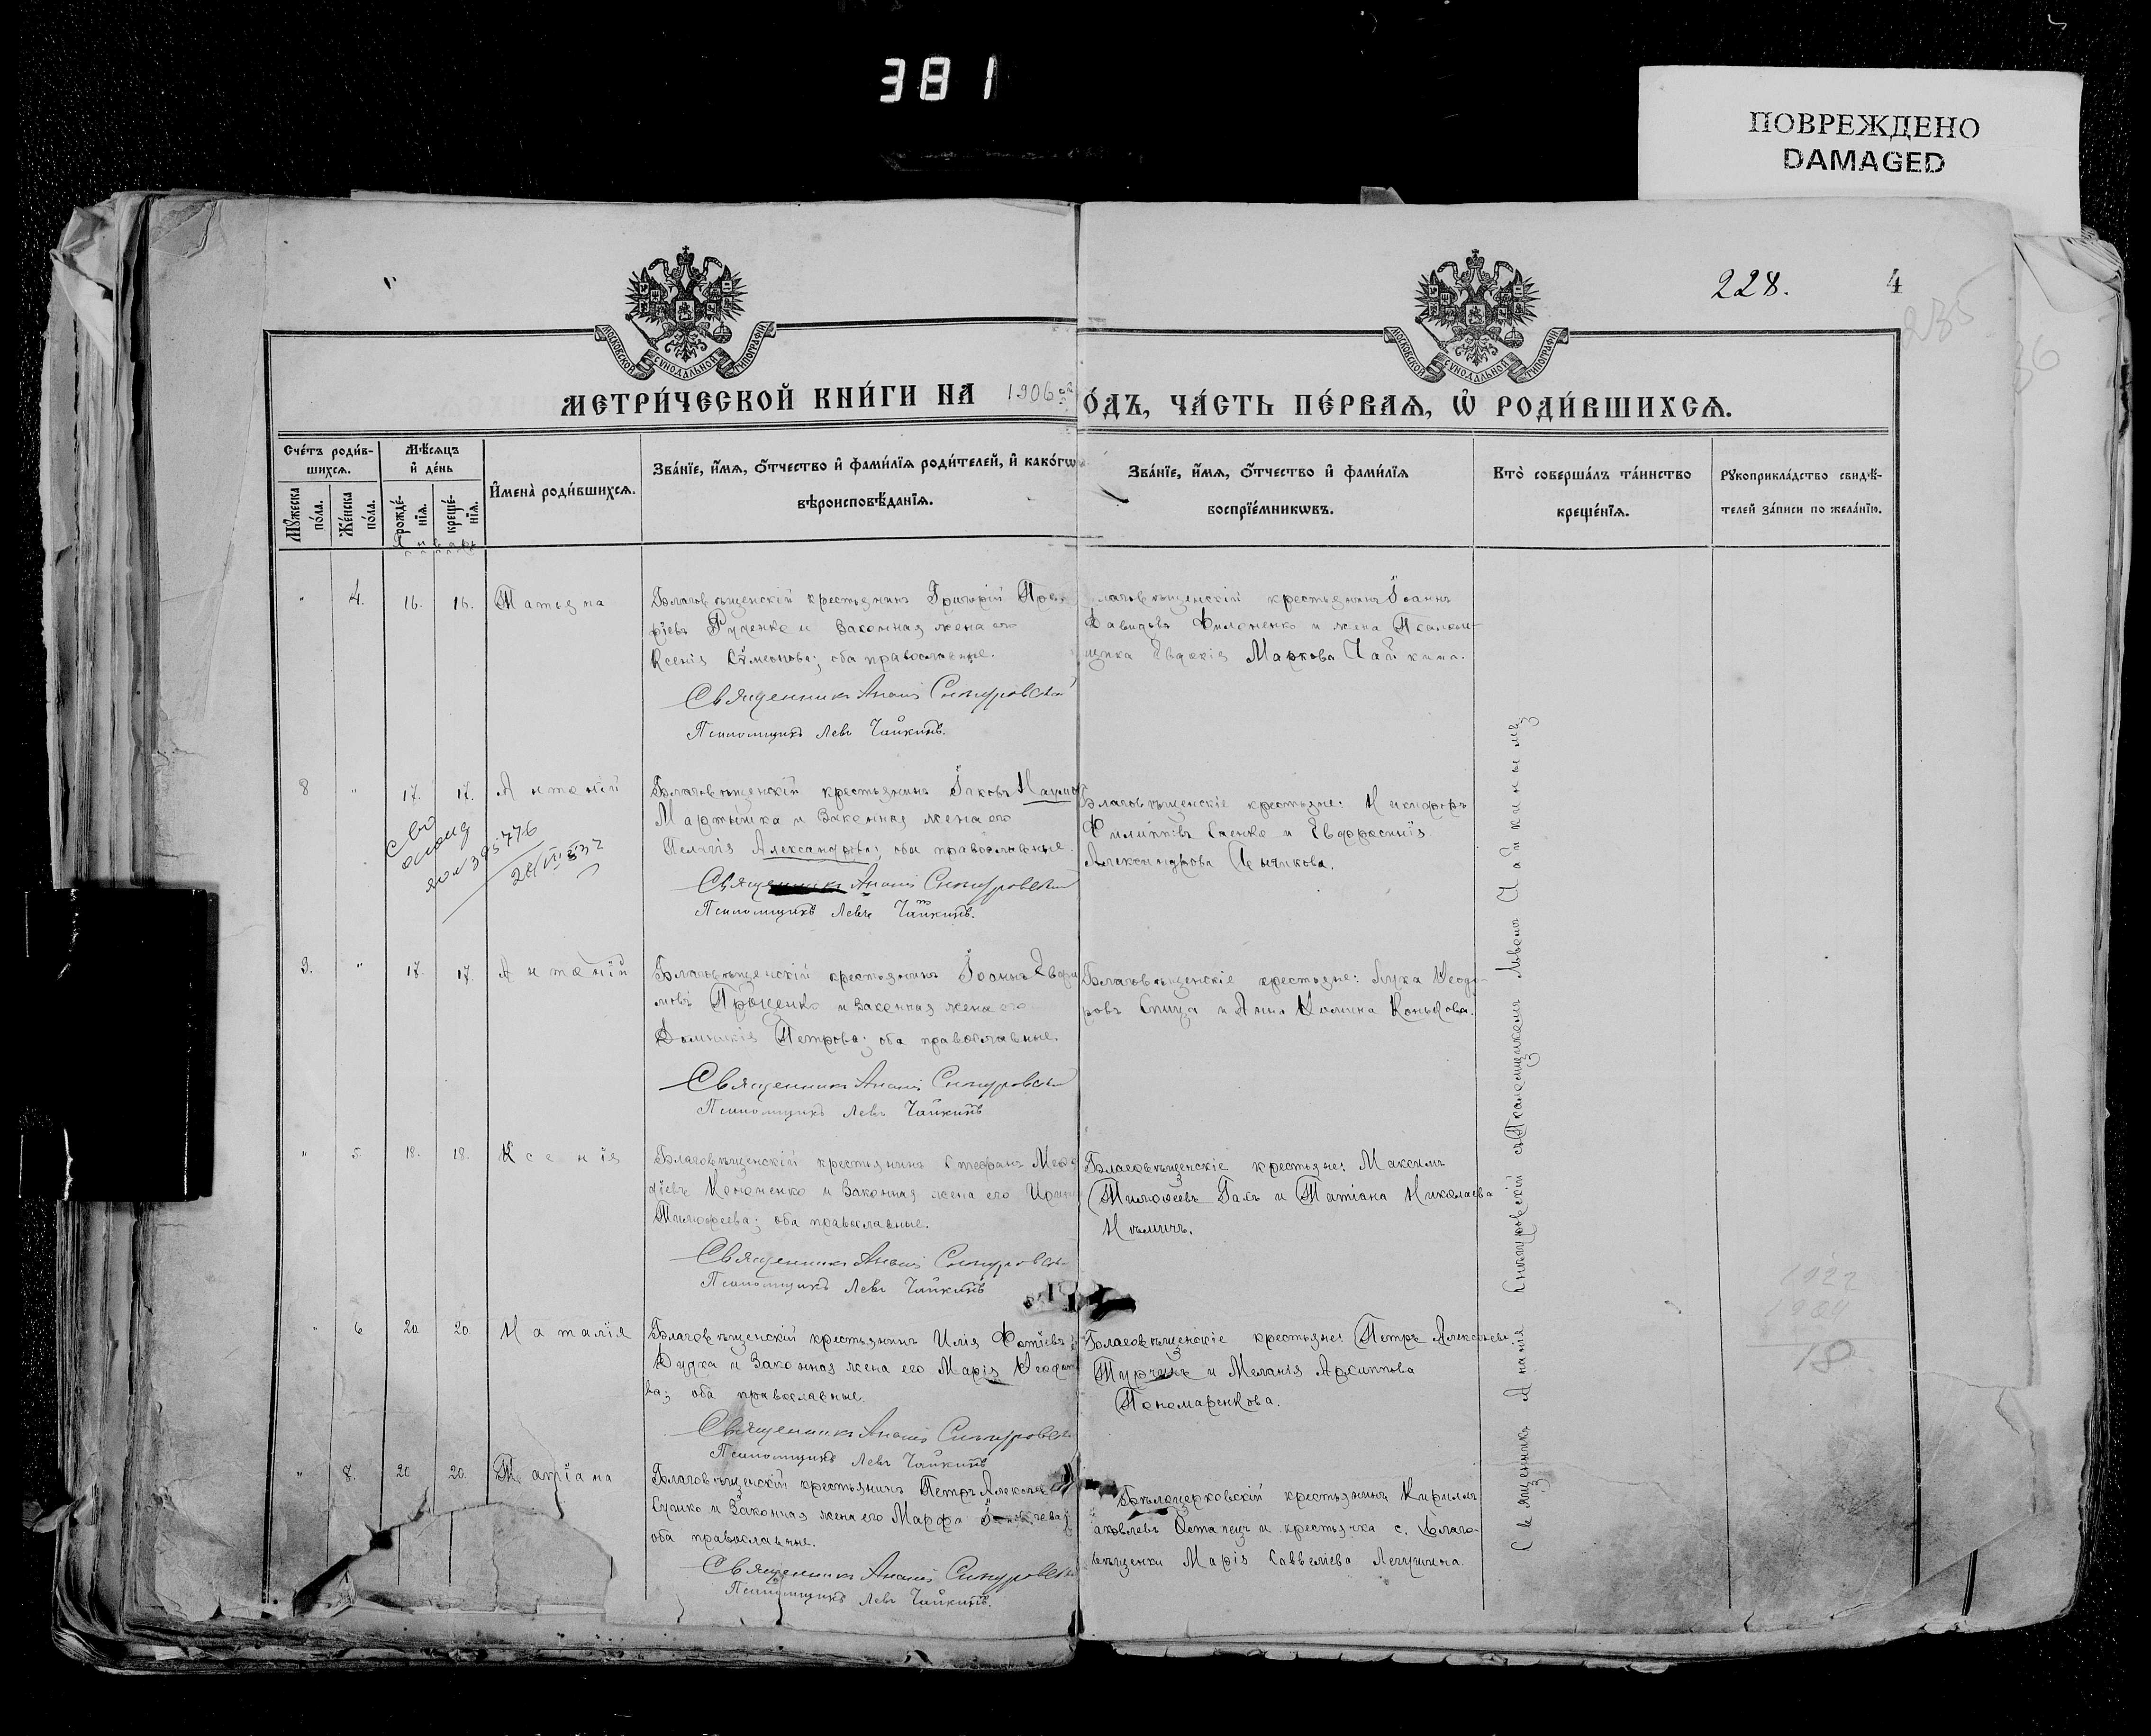 381
ПОВРЕЖДЕНО
DAMAGED
228.
4
235
36
МОСКОВСКОЙ СѴНОДАЛЬНОЙ ТИПОГРАФІИ
МОСКОВСКОЙ СѴНОДАЛЬНОЙ ТИПОГРАФІИ
МЕТРИ́ЧЕСКОЙ КНИ́ГИ НА 1906
О́ДЪ, ЧА́СТЬ ПЕ́РВАѦ, Ѡ҆ РОДИ́ВШИХСѦ.
Сче́тъ роди́в-
шихсѧ.
Мѣ́сѧцъ
и҆ де́нь
Мꙋ́жеска
по́ла.
Же́нска
по́ла.
рожде́-
нїѧ.
креще́-
нїѧ.
И҆мена̀ роди́вшихсѧ.
Зва́нїе, и҆́мѧ, ѻ҆́тчество и҆ фами́лїѧ роди́телей, и҆ како́гѡ
вѣроисповѣ́данїѧ.
Зва́нїе, и҆́мѧ, ѻ҆́тчество и҆ фами́лїѧ
воспрїе́мникѡвъ.
Кто̀ соверша́лъ та́инство
креще́нїѧ.
Рꙋкоприкла́дство свидѣ́-
телей за́писи по жела́нїю.
Январь
" 4. 16. 16. Татьяна
Благовѣщенскій крестьянинъ Григорій
ріевъ Руденко и законная жена его
Ксенія Сѵмеонова; оба православные.
Священникъ Ананій Снегуровскій
Псаломщикъ Левъ Чайкинъ.
лаговѣщенскій крестьянинъ Іоаннъ
Давидовъ Филоненко и жена Псалом-
щика Евдокія Маркова Чайкина.
8 " 17. 17. Антоній
Благовѣщенскій крестьянинъ Іаковъ Наумо
Мартышка и законная жена его
Пелагія Александрова; оба православные.
Священникъ Ананій Снегуровскій
Псаломщикъ Левъ Чайкинъ.
Благовѣщенскіе крестьяне: Никифоръ
Филипповъ Саенко и Евфросинія
Александрова
9. " 17. 17. Антоній
Благовѣщенскій крестьянинъ Іоаннъ Евфи
мовъ Проценко и законная жена его
Домникія Петрова; оба православные.
Священникъ Ананій Снегуровскій
Псаломщикъ Левъ Чайкинъ
Благовѣщенскіе крестьяне: Лука Ѳеодо-
ровъ Спица и Анна Ѳомина Конькова.
" 5. 18. 18. Ксенія
Благовѣщенскій крестьянинъ Стефанъ Меѳо
діевъ Кононенко и законная жена его Ирина
Тимоѳеева; оба православные.
Священникъ Ананій Снегуровскій
Псаломщикъ Левъ Чайкинъ
Благовѣщенскіе крестьяне: Максимъ
Тимоѳеевъ Галъ и Татіана Николаева
Нѣмичъ.
" 6 20. 20. Наталія
Благовѣщенскій крестьянинъ Илія Фотіевъ
Дудка и законная жена его Марія Ѳеодото
ва; оба православные.
Священникъ Ананій Снегуровскій
Псаломщикъ Левъ Чайкинъ
Благовѣщенскіе крестьяне: Петръ Алексѣевъ
Турчинъ и Меланія Архиппова
Пономаренкова.
" 8. 20 20. Татіана
Благовѣщенскій крестьянинъ Петръ Алексѣевъ
Сушко и законная жена его Марфа
оба православные.
Священникъ Ананій Снегуровскій
Псаломщикъ Левъ Чайкинъ.
Бѣлоцерковскій крестьянинъ Кириллъ
аковлевъ Остапецъ и крестьянка с. Благо-
вѣщенки Марія Савеліева Легушина.
Священникъ Ананія Снегуровскій съ Псаломщикомъ Львомъ Чайкинымъ
1922
1904
18